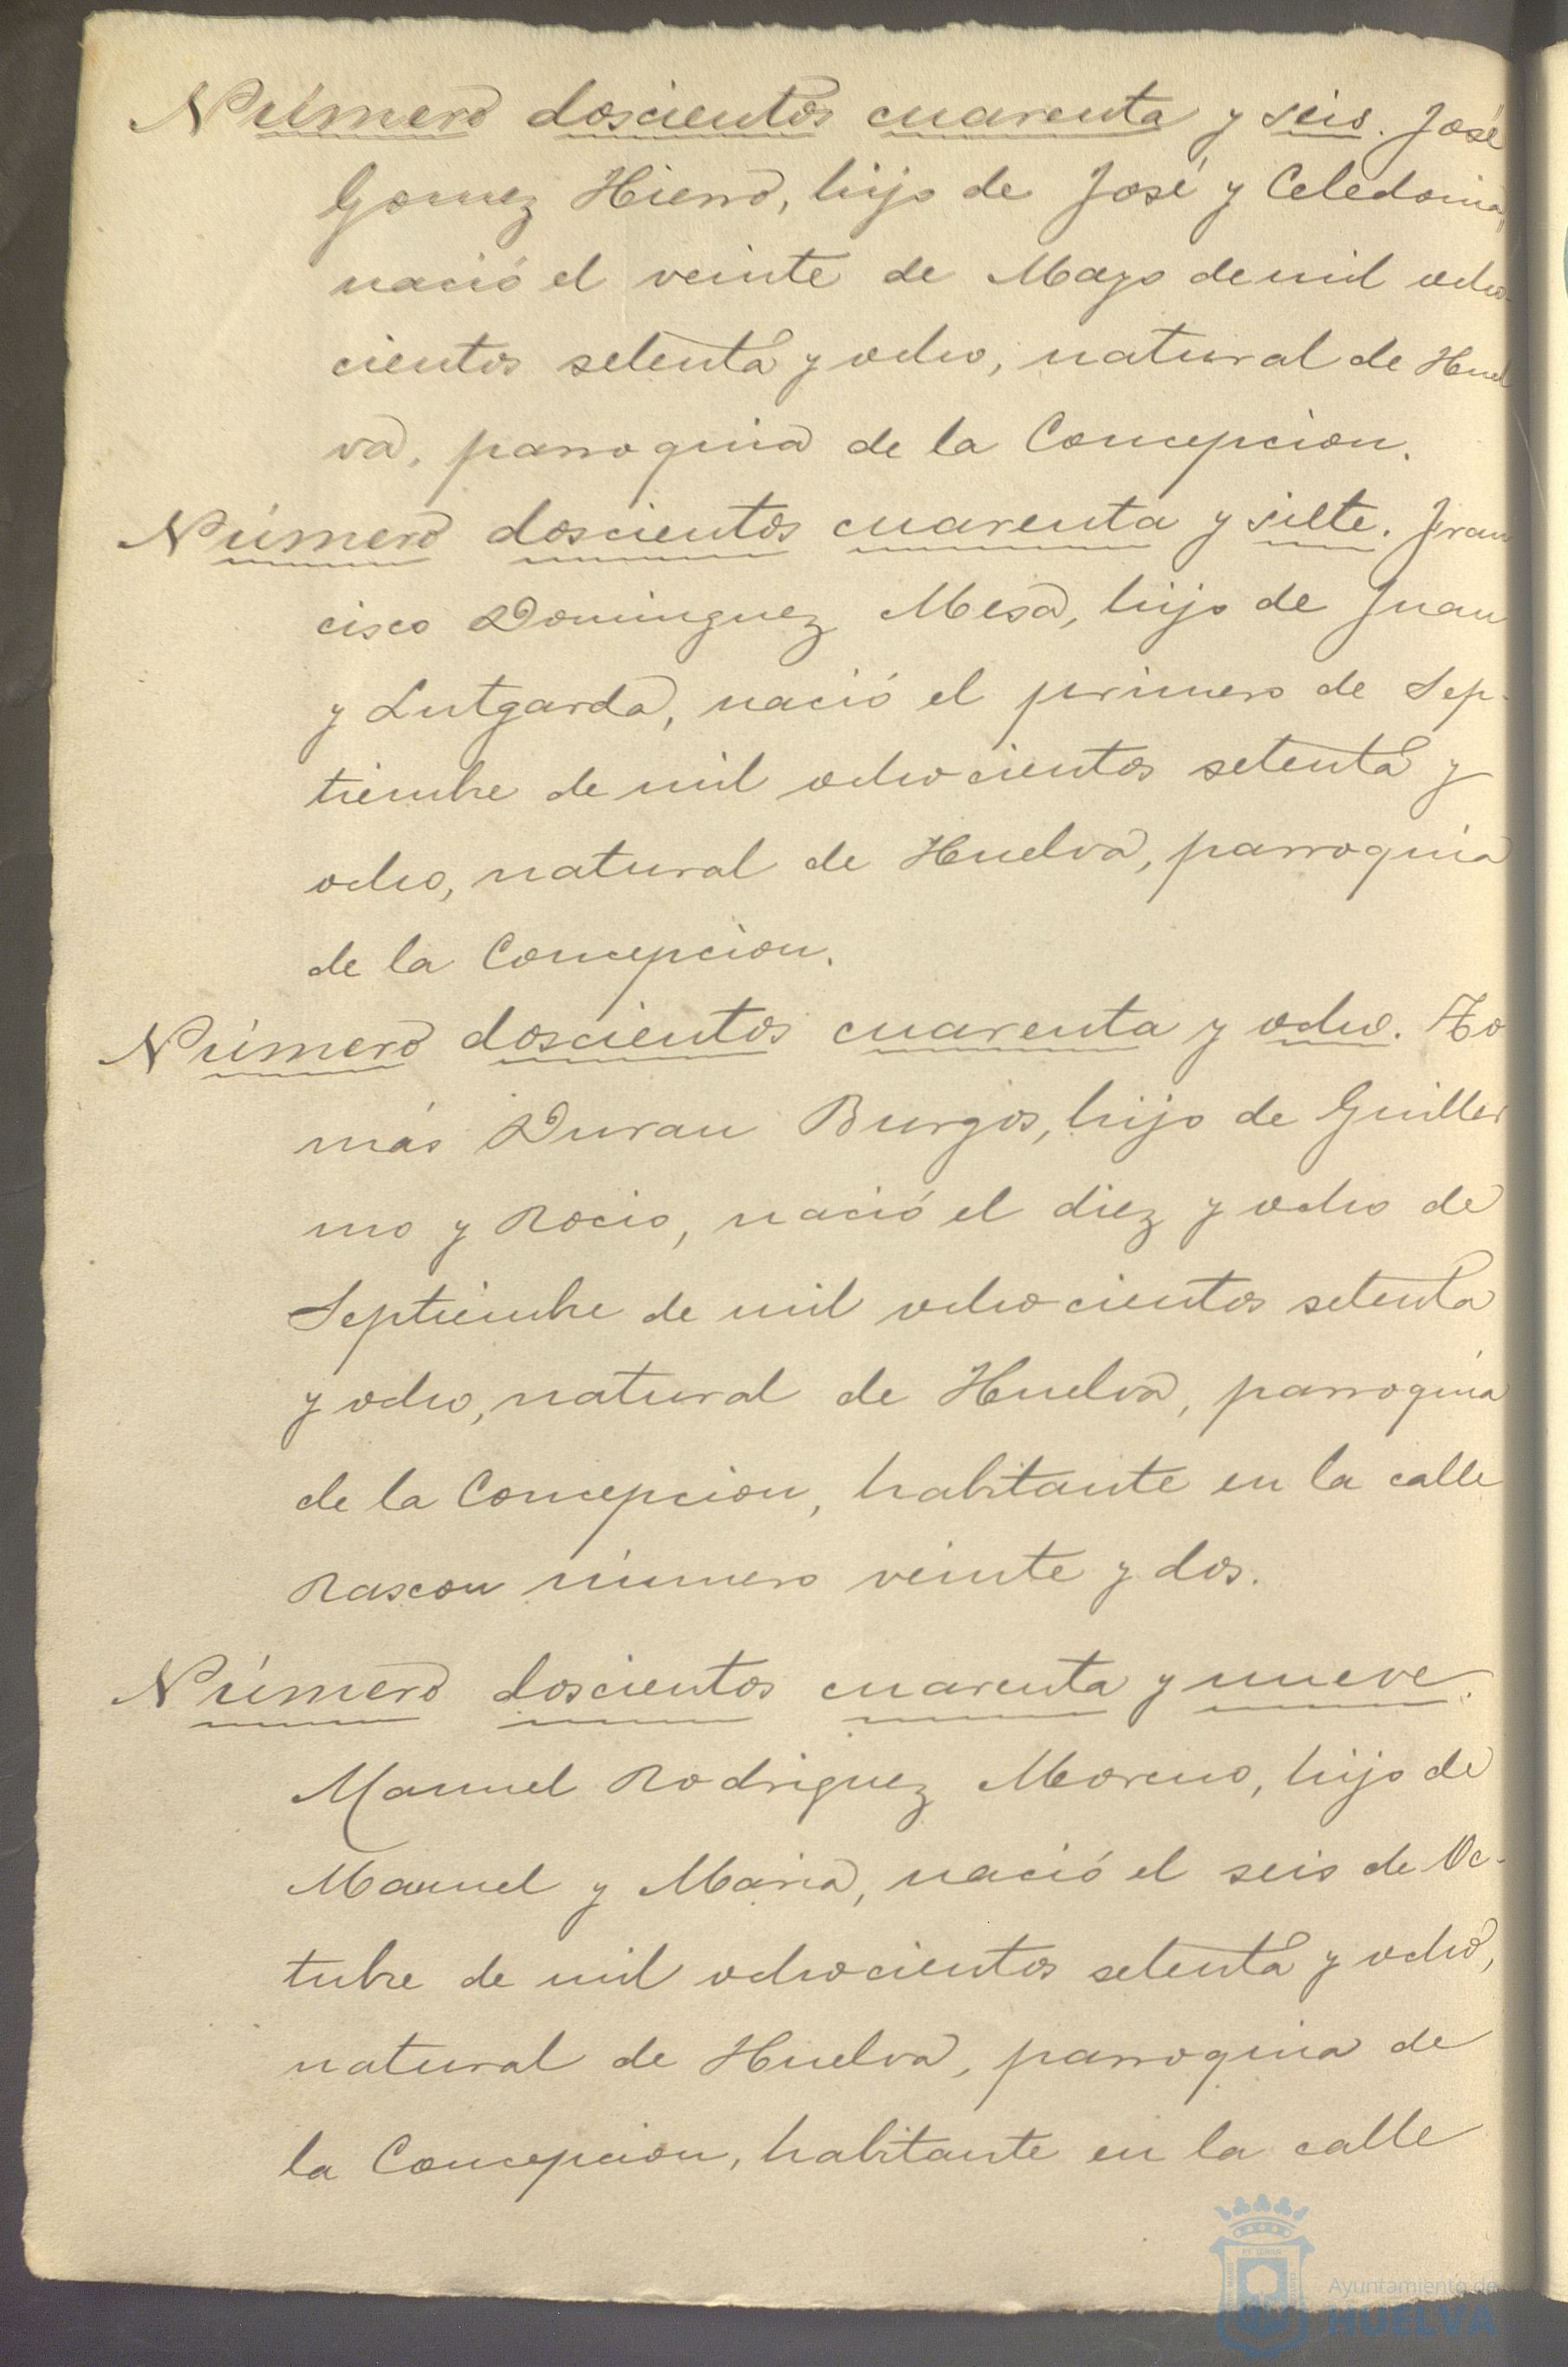 Número doscientos cuarenta y seis. José
Gomez Hierro, hijo de José y Celedonia,
nació el veinte de Mayo de mil ocho-
cientos setenta y ocho, natural de Huel
va, parroquia de la Concepcion.
Número doscientos cuarenta y siete. Fran
cisco Dominguez Mesa, hijo de Juan
y Lutgarda, nació el primero de Sep-
tiembre de mil ochocientos setenta y
ocho, natural de Huelva, parroquia
de la Concepcion.
Número doscientos cuarenta y ocho. To
más Duran Burgos, hijo de Guiller
mo y Rocio, nació el diez y ocho de
Septiembre de mil ochocientos setenta
y ocho, natural de Huelva, parroquia
de la Concepcion, habitante en la calle
Rascon número veinte y dos.
Número doscientos cuarenta y nueve.
Manuel Rodriguez Moreno, hijo de
Manuel y Maria, nació el seis de Oc-
tubre de mil ochocientos setenta y ocho,
natural de Huelva, parroquia de
la Concepcion, habitante en la calle
Ayuntamiento de
HUELVA